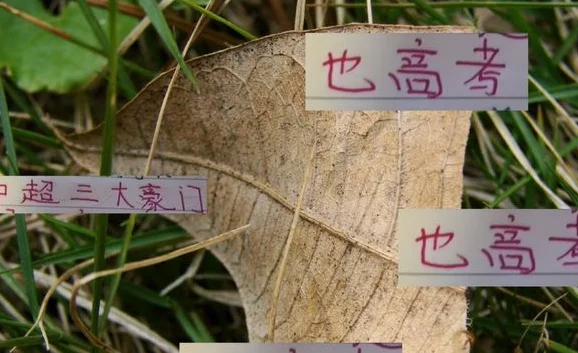 也高考
中超三大豪门
也高